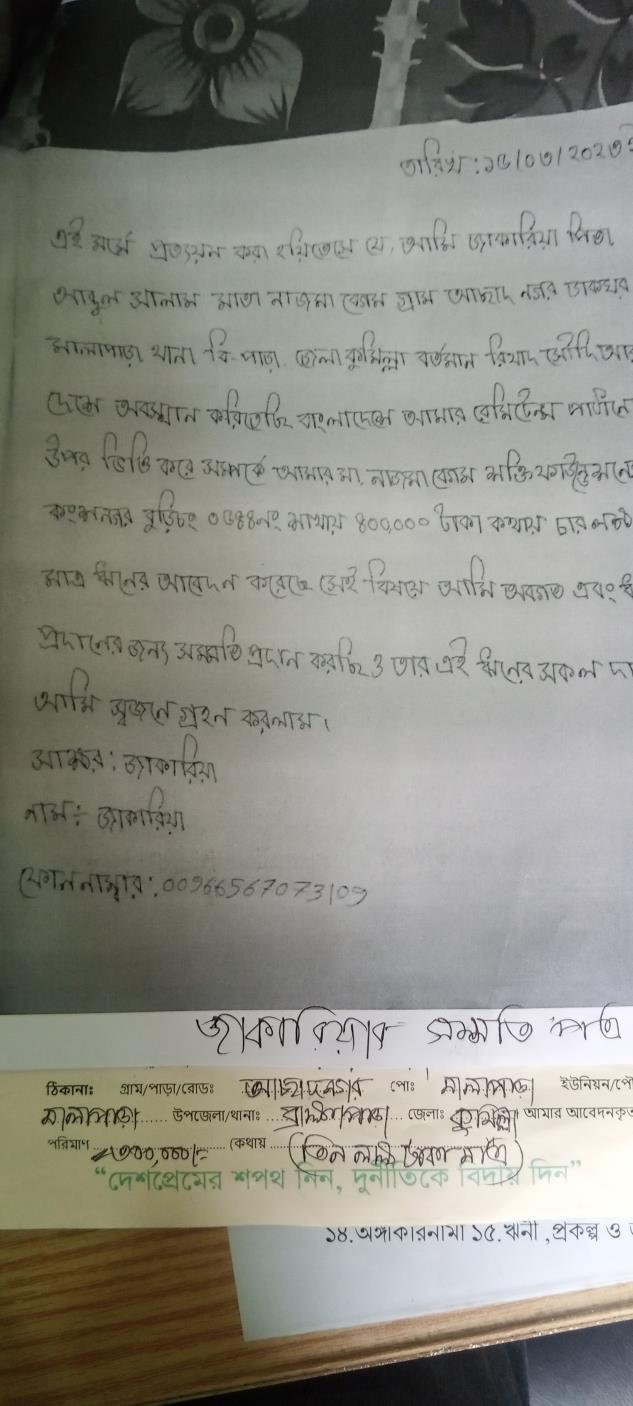 তারিখ: ১৫/০৩/২০২৩
এই মর্মে প্রত্যয়ন করা হয়িতেছে যে, আমি জাকারিয়া পিতা
আবুল আলাম মাতা নাজমা বেগম গ্রাম আছাদ নগর ডাকঘর
মালাপাড়া থানা বি-পাড়া জেলা কুমিল্লা বর্তমান রিয়াদ সৌদি আর
দেশে অবস্থান করিতেছি বাংলাদেশে আমার রেমিটেন্স পাঠানে
উপর ভিত্তি করে সম্পর্কে আমার মা, নাজমা বেগম
কংশনগর বুড়িচং নং শাখায় ৪০০,০০০ টাকা কথায় চার লক্ষ
মাত্র ঋনের আবেদন করেছে সেই বিষয়ে আমি অবগত এবং ঋ
প্রদানের জন্য সম্মতি প্রদান করছি ও তার এই ঋনের সকল দা
আমি স্বজনে গ্রহন করলাম।
সাক্ষর: জাকারিয়া
নাম: জাকারিয়া
ফোন নাম্বার: 00966567073109
জাকারিয়ার সম্মতি পত্র
ঠিকানা: গ্রাম/পাড়া/রোড: আছাদনগর পো: মালাপাড়া ইউনিয়ন/পৌ
মালাপাড়া...... উপজেলা/থানা: ...ব্রাহ্মণপাড়া... জেলা: কুমিল্লা আমার আবেদনকৃত
পরিমাণ ৩০০,০০০/= (কথায় (তিন লক্ষ টাকা মাত্র)
“দেশপ্রেমের শপথ নিন, দুর্নীতিকে বিদায় দিন”
১৪.অঙ্গীকারনামা ১৫.ঋনী ,প্রকল্প ও